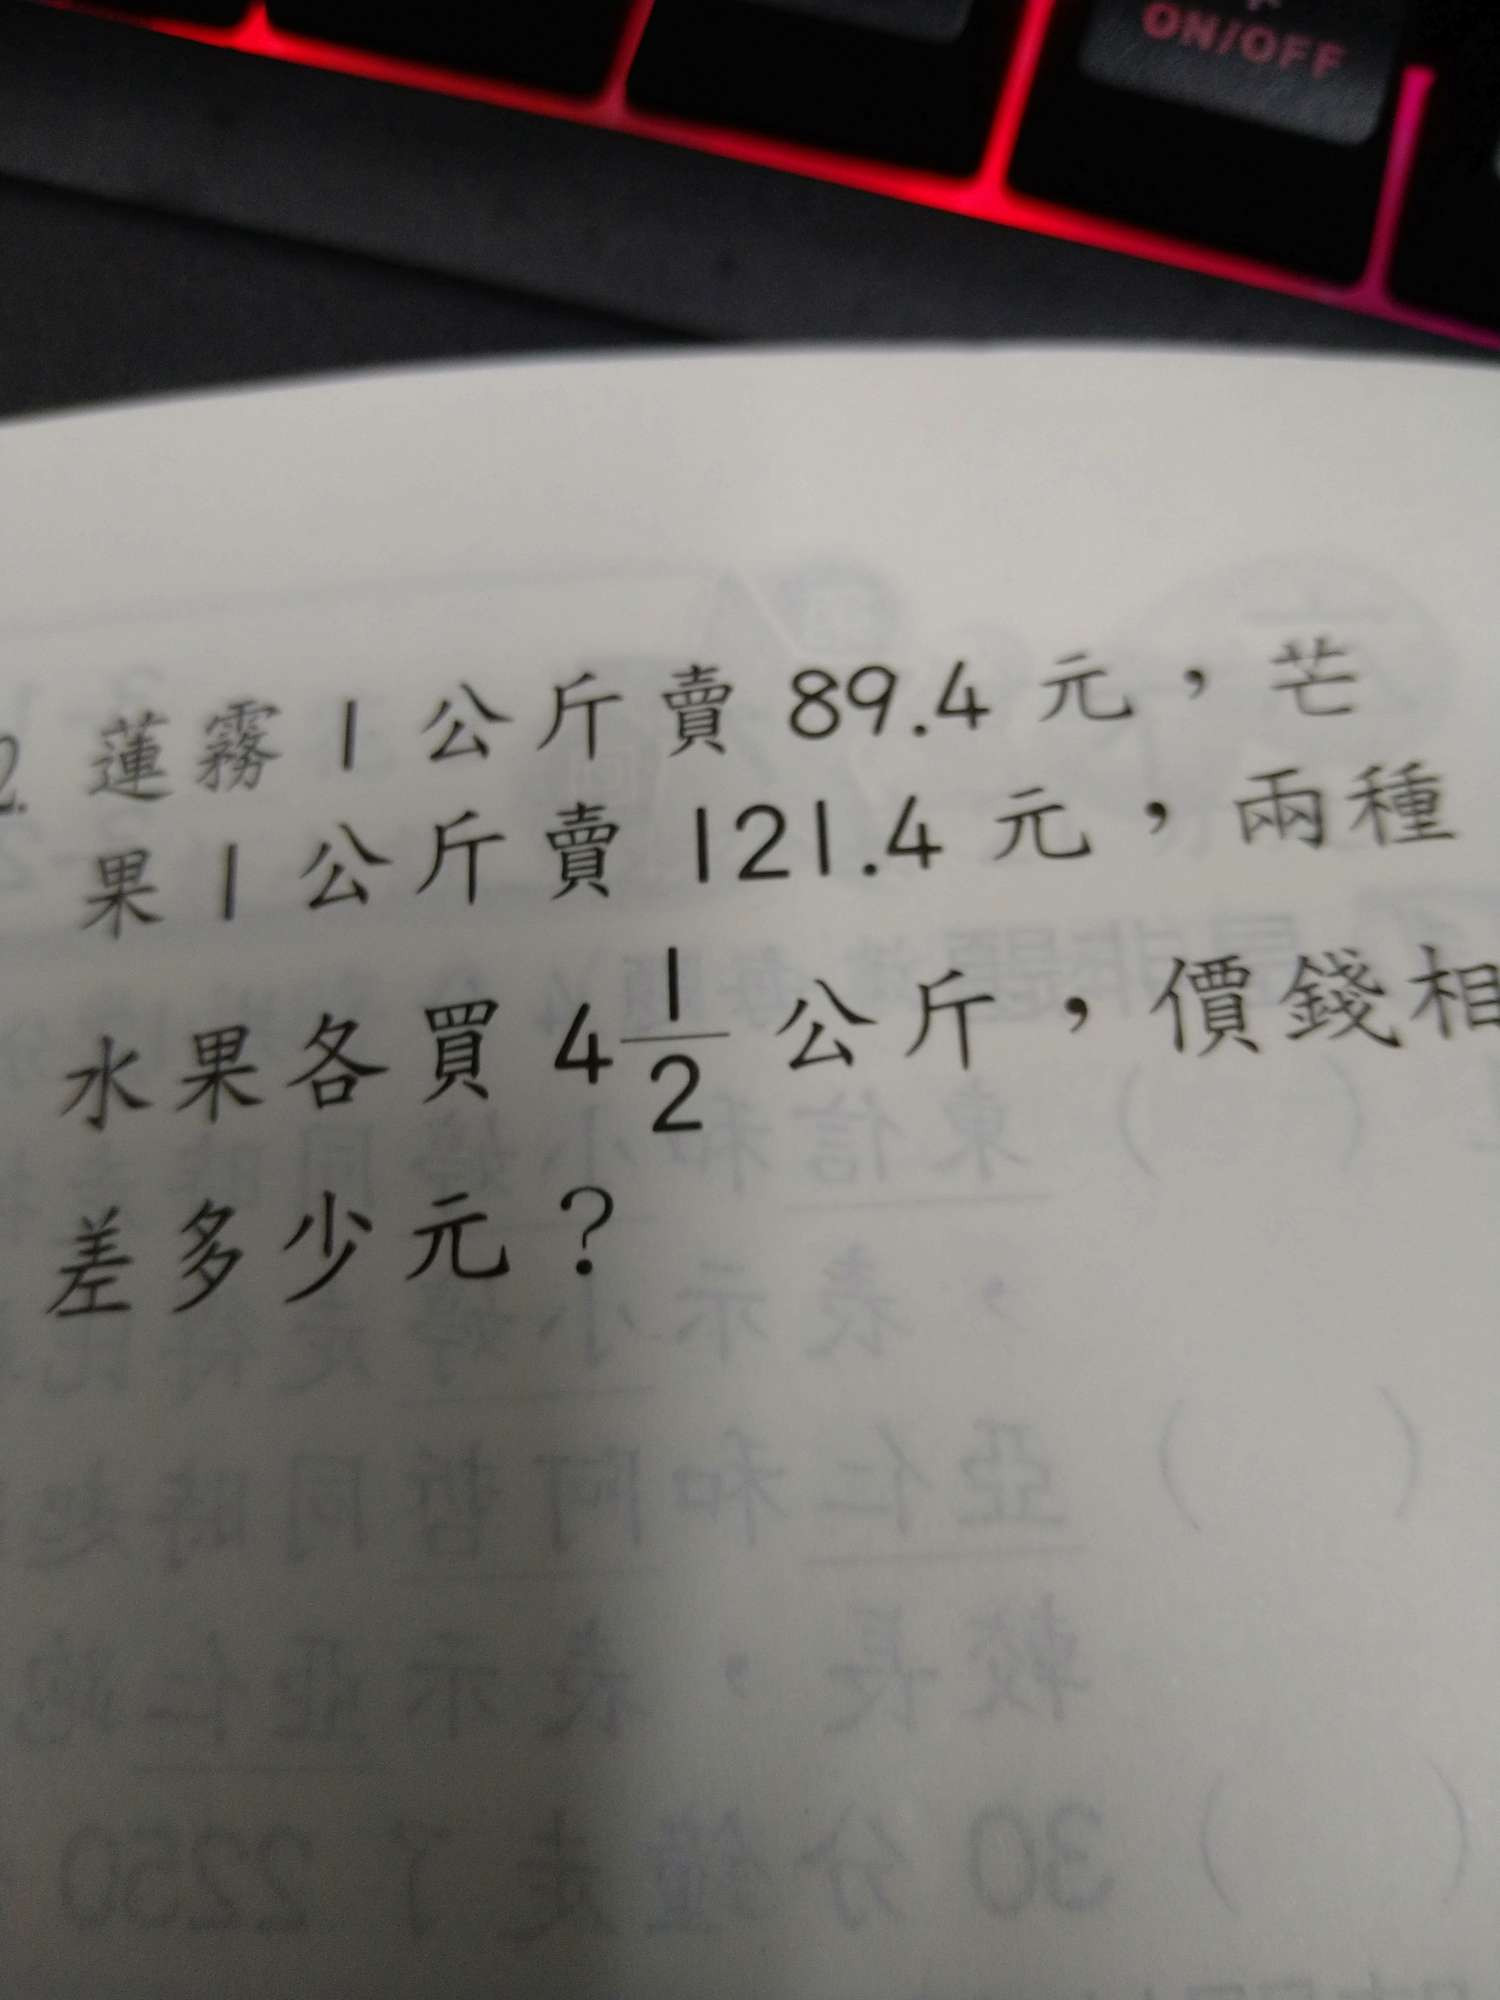 ON/OFF
2. 蓮霧 1 公斤賣 89.4 元，芒
果 1 公斤賣 121.4 元，兩種
水果各買 4 1/2 公斤，價錢相
差多少元？